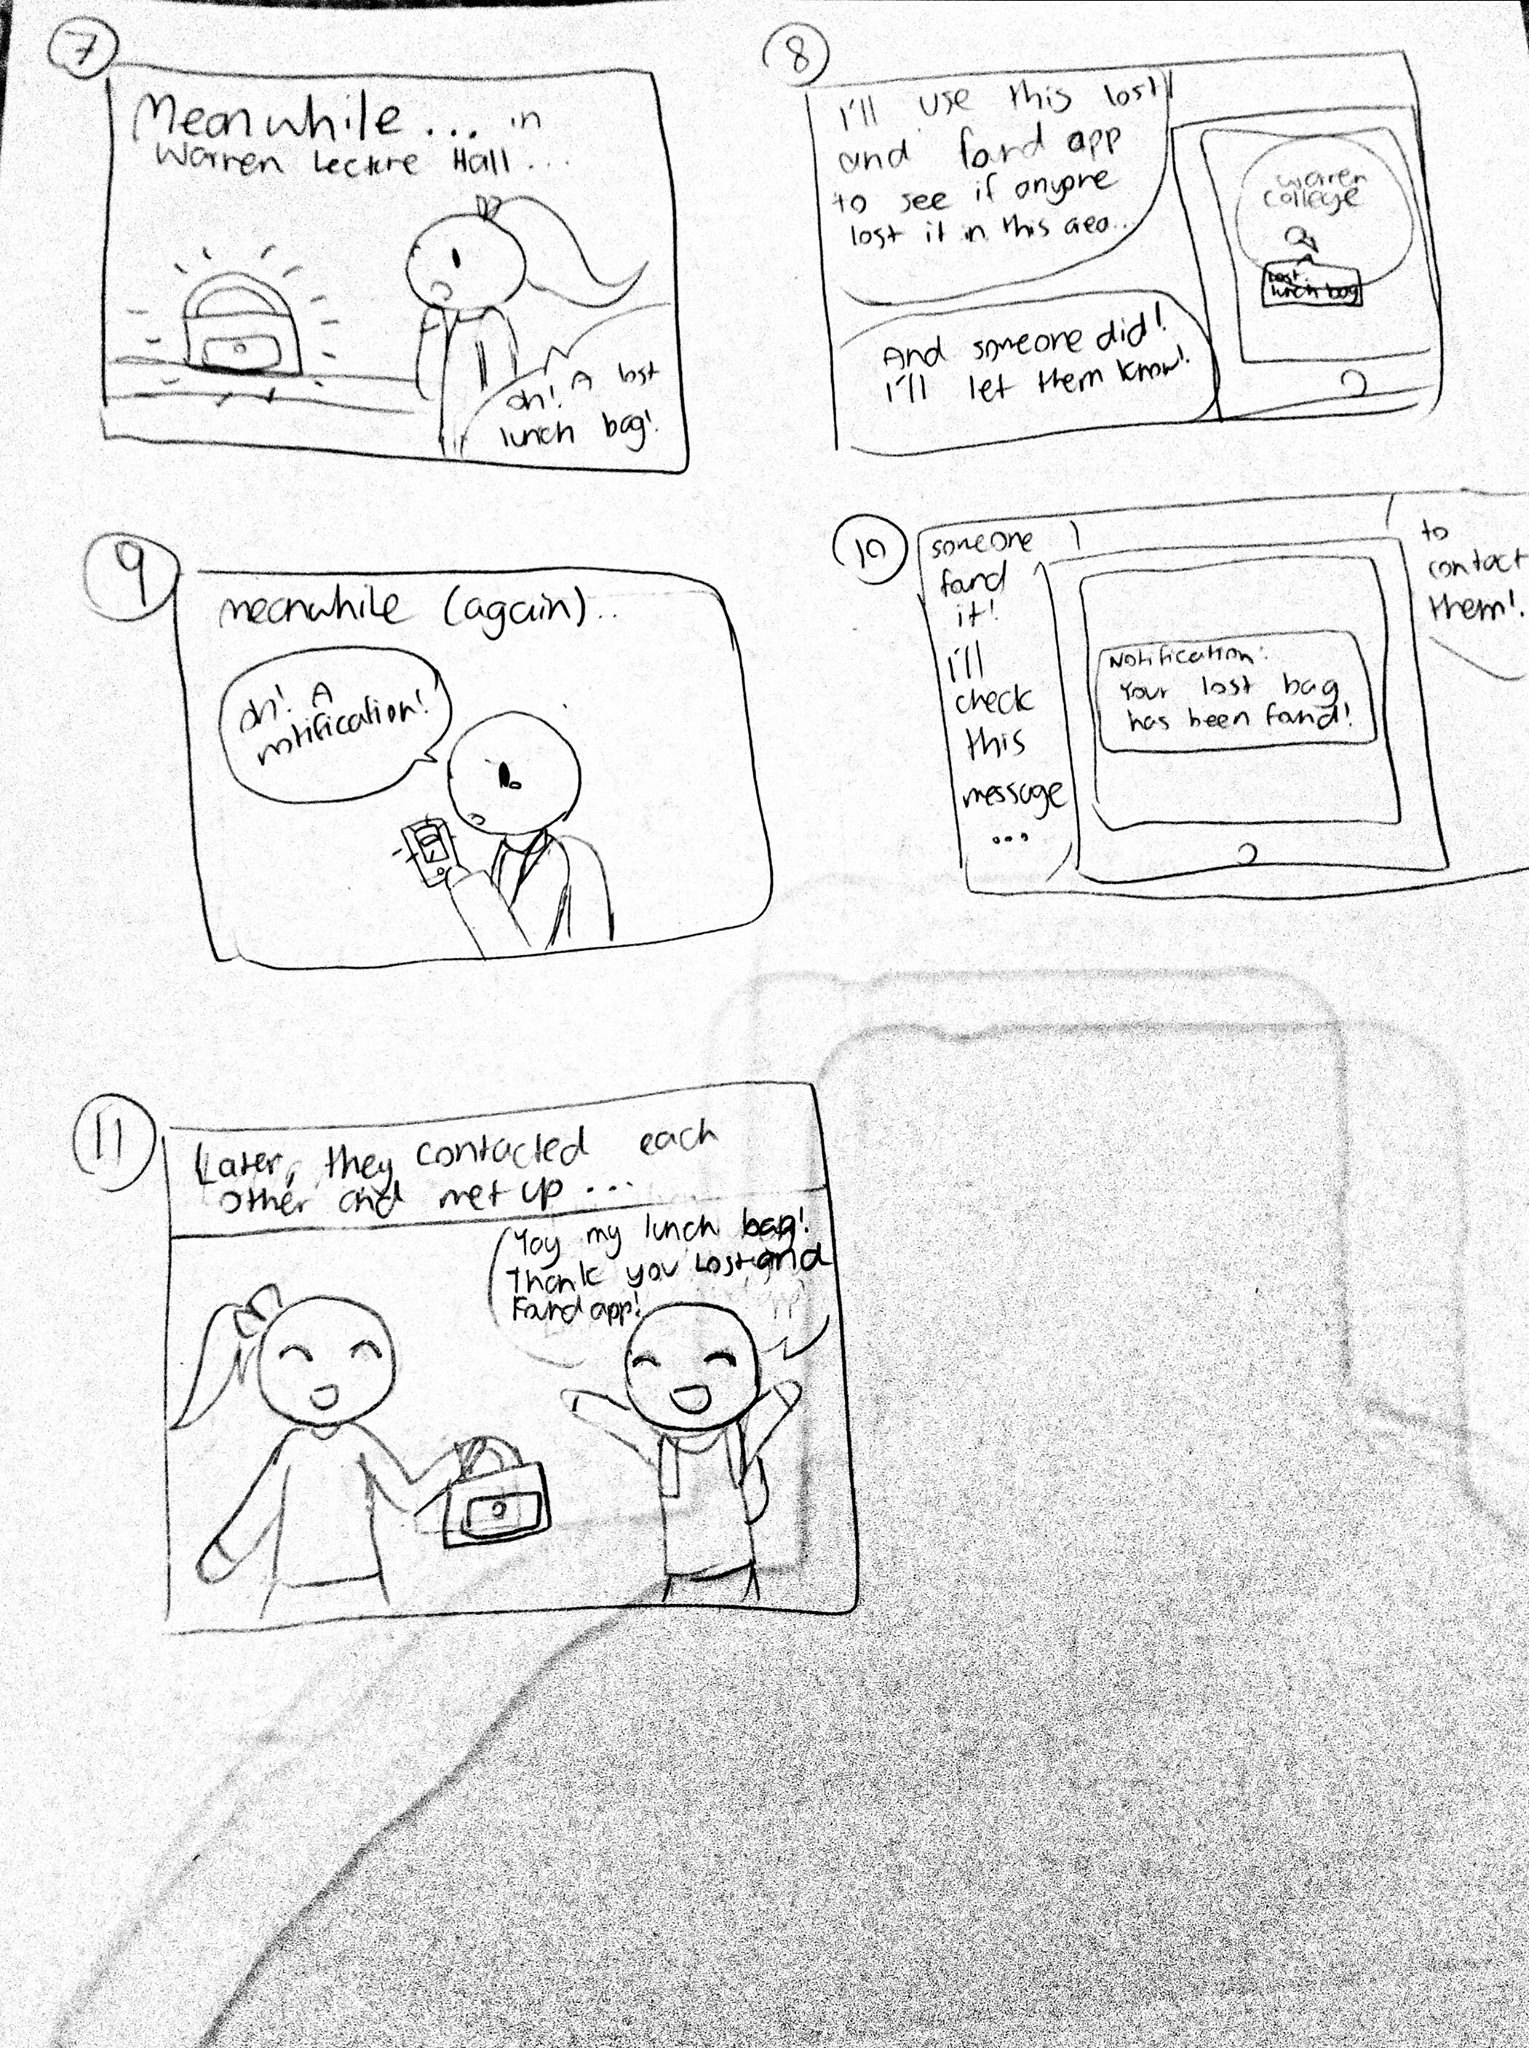 7
Meanwhile... in
Warren Lecture Hall...
Oh! A lost
lunch bag!
8
I'll use this lost
and found app
to see if anyone
lost it in this area...
And someone did!
I'll let them know!
Warren
College
Lost:
lunch bag
9
meanwhile (again)..
Oh! A
notification!
10
someone
found
it!
I'll
check
this
message
...
Notification:
Your lost bag
has been found!
to
contact
them!
11
Later, they contacted each
other and met up...
Yay my lunch bag!
Thank you Lost and
Found app!